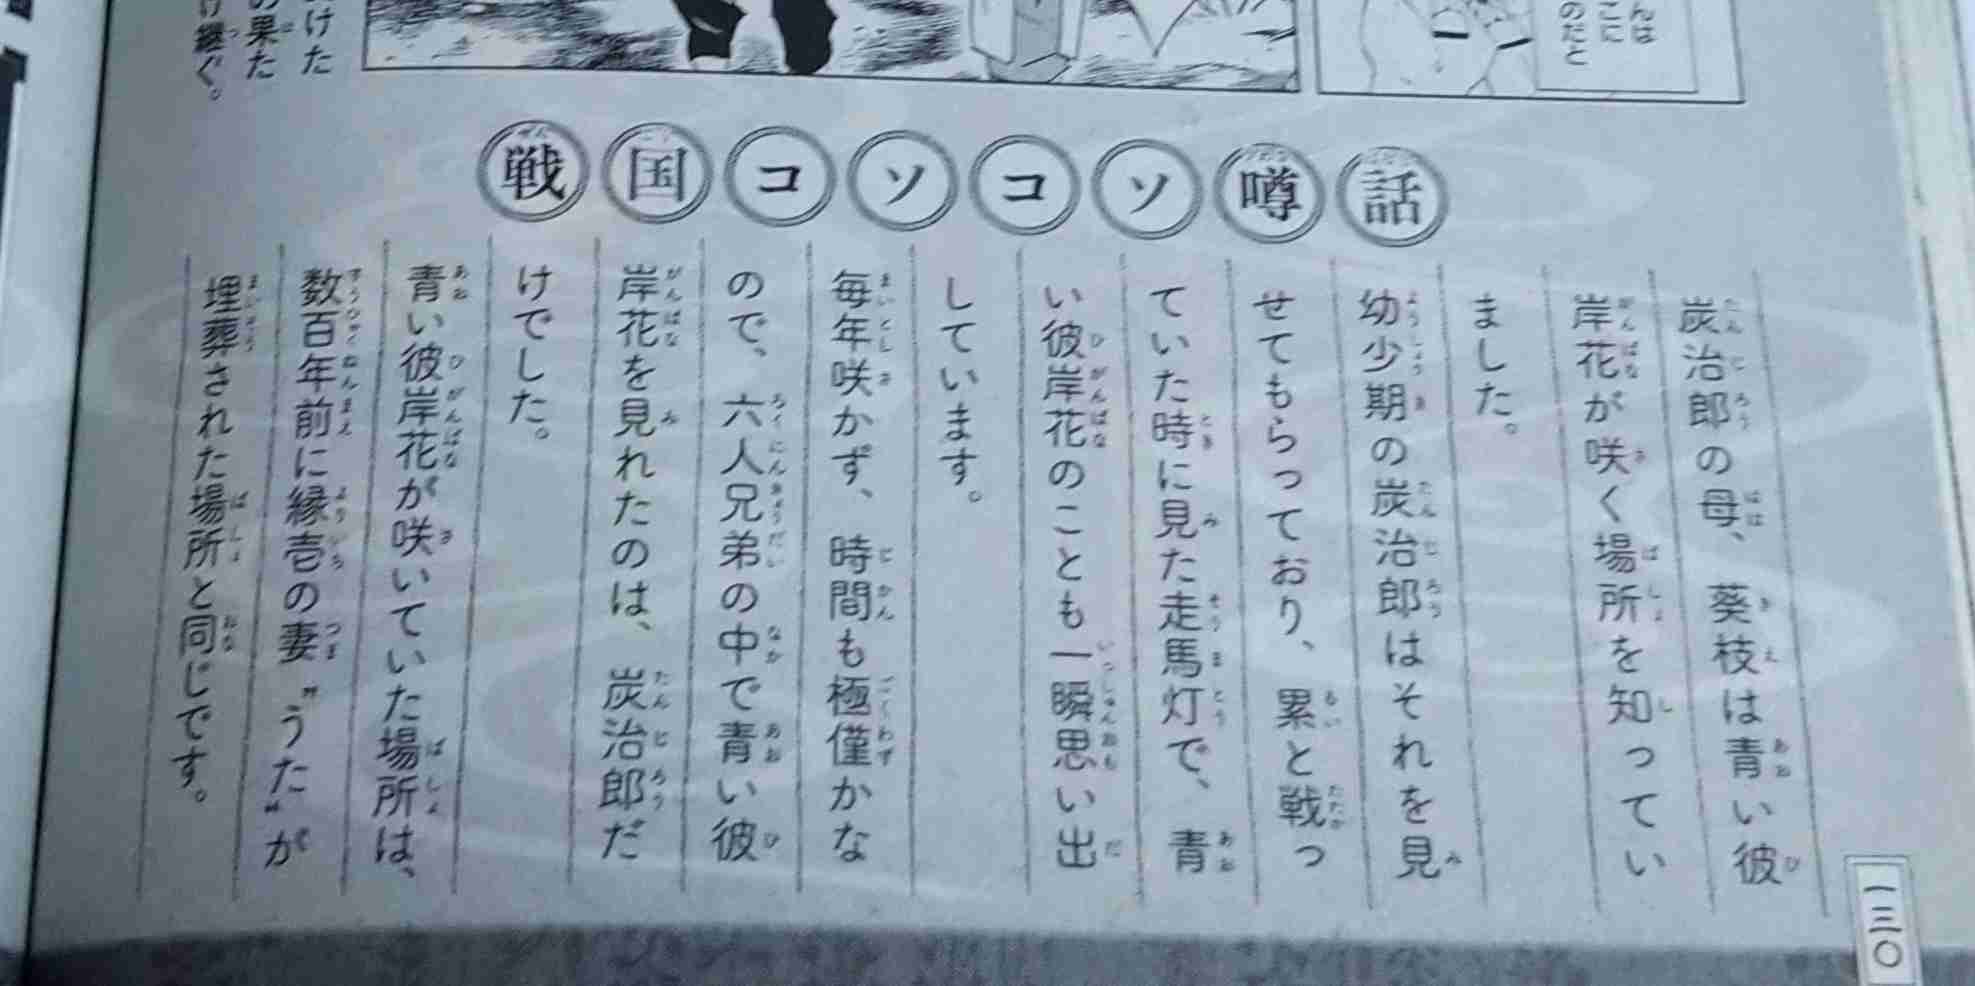 んは
こに
のだと
けた
の果た
け継ぐ。
戦国コソコソ噂話
炭治郎の母、葵枝は青い彼
岸花が咲く場所を知ってい
ました。
幼少期の炭治郎はそれを見
せてもらっており、累と戦っ
ていた時に見た走馬灯で、青
い彼岸花のことも一瞬思い出
しています。
毎年咲かず、時間も極僅かな
ので、六人兄弟の中で青い彼
岸花を見れたのは、炭治郎だ
けでした。
青い彼岸花が咲いていた場所は、
数百年前に縁壱の妻〝うた〟が
埋葬された場所と同じです。
一三〇